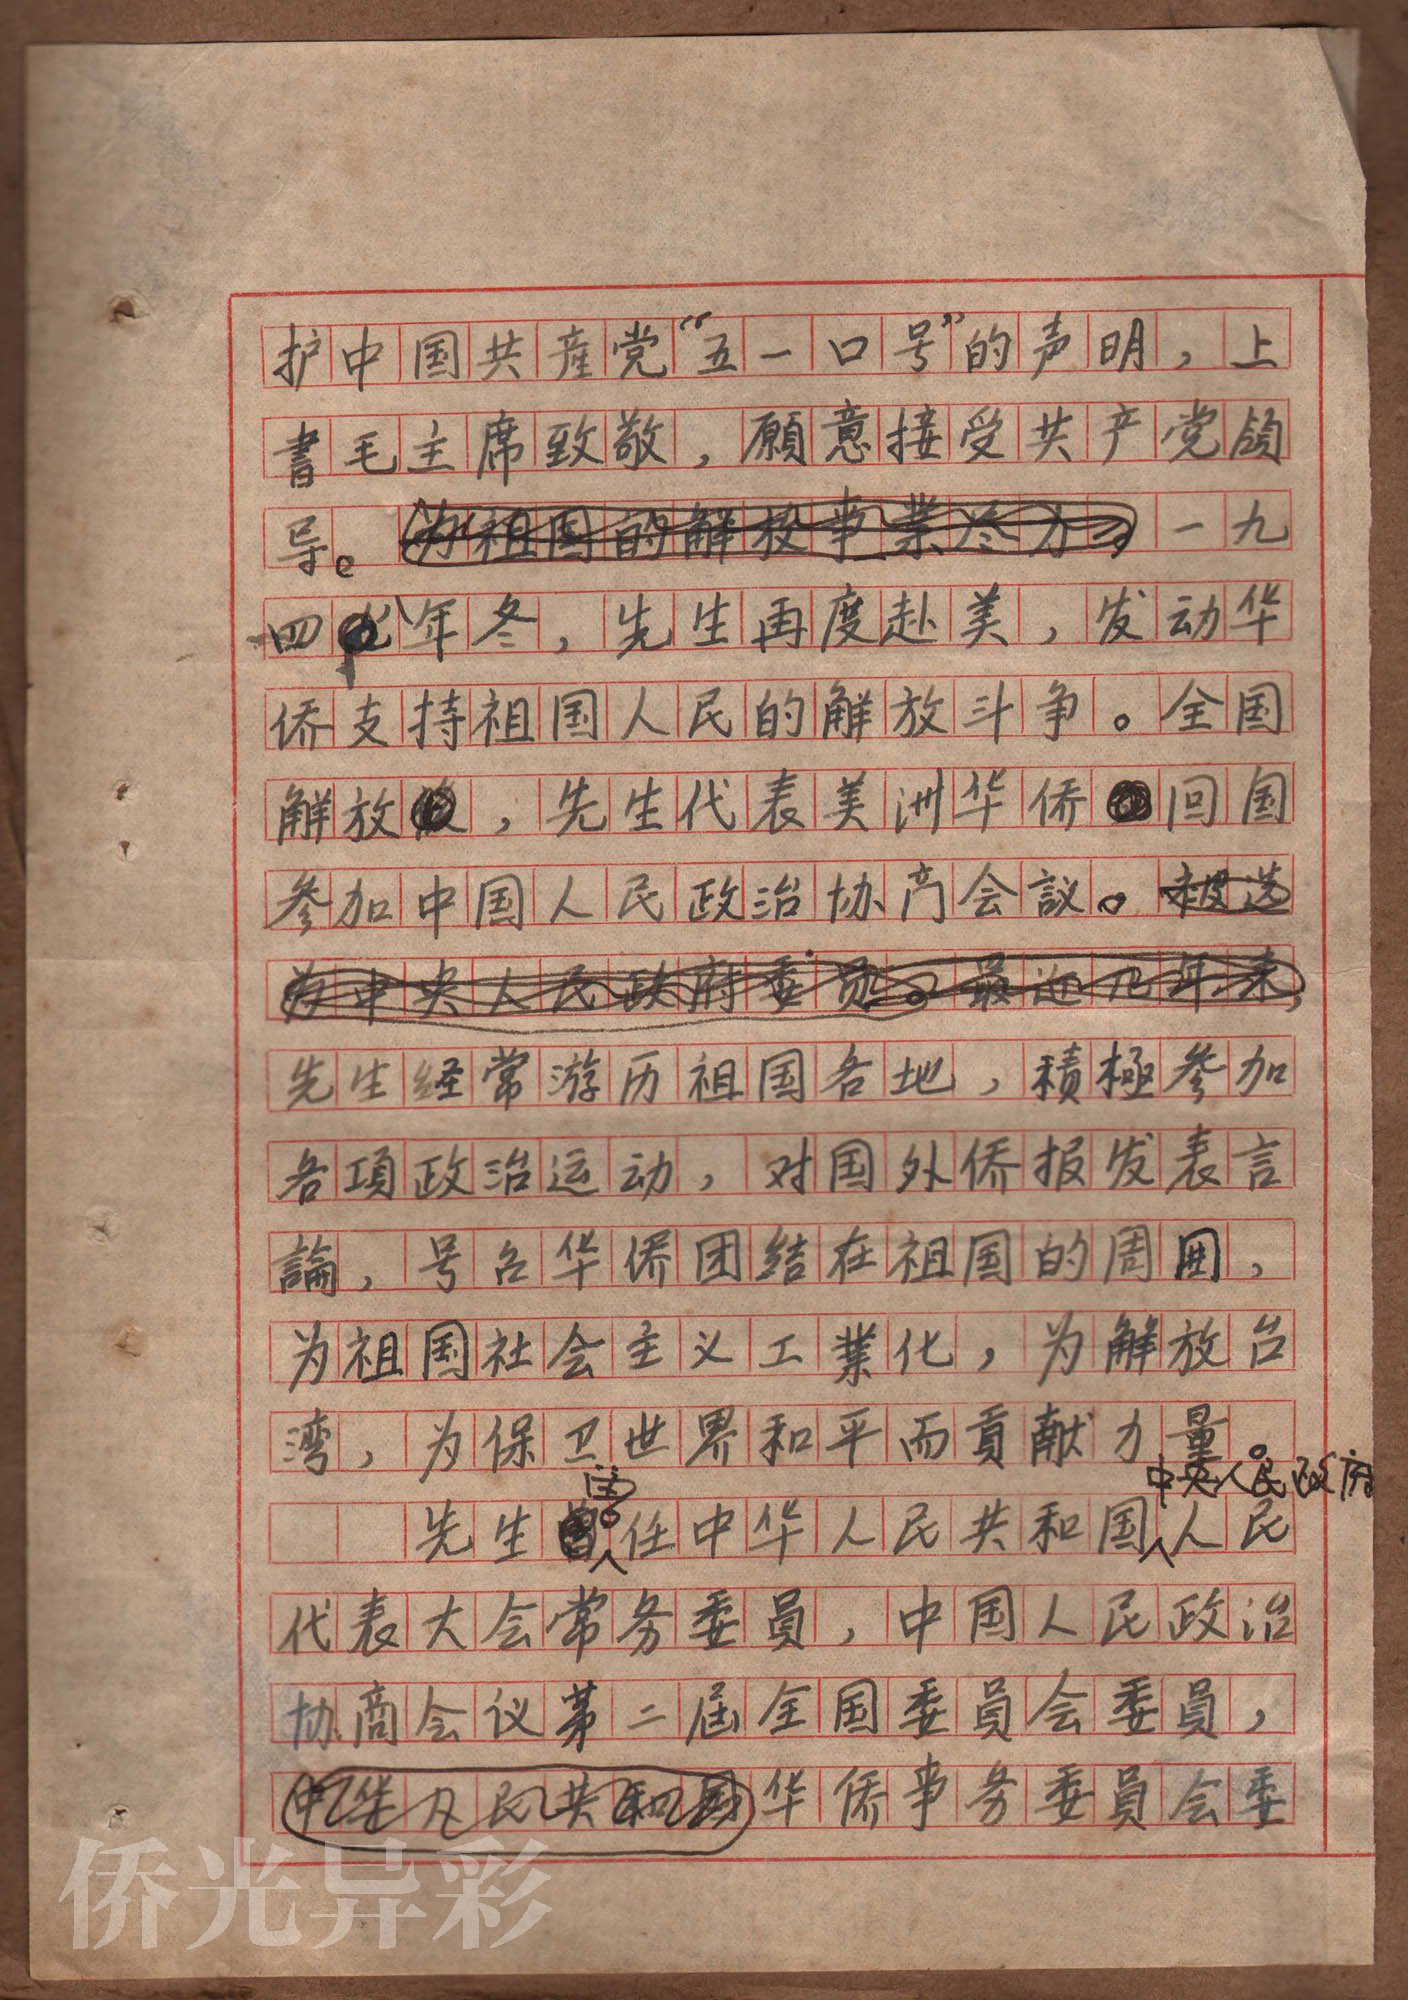 护中国共産党“五一口号”的声明，上
書毛主席致敬，願意接受共产党領
导。为祖国的解放事業尽力。一九
四年冬，先生再度赴美，发动华
侨支持祖国人民的解放斗争。全国
解放，先生代表美洲华侨回国
参加中国人民政治协商会議。被选
为中央人民政府委员。最近几年来，
先生经常游历祖国各地，積極参加
各項政治运动，对国外侨报发表言
論，号召华侨团结在祖国的周围，
为祖国社会主义工業化，为解放台
湾，为保卫世界和平而貢献力量。
中央人民政府
先生任中华人民共和国人民
代表大会常务委員，中国人民政治
协商会议第二届全国委員会委員，
中华人民共和国华侨事务委員会委
侨光异彩